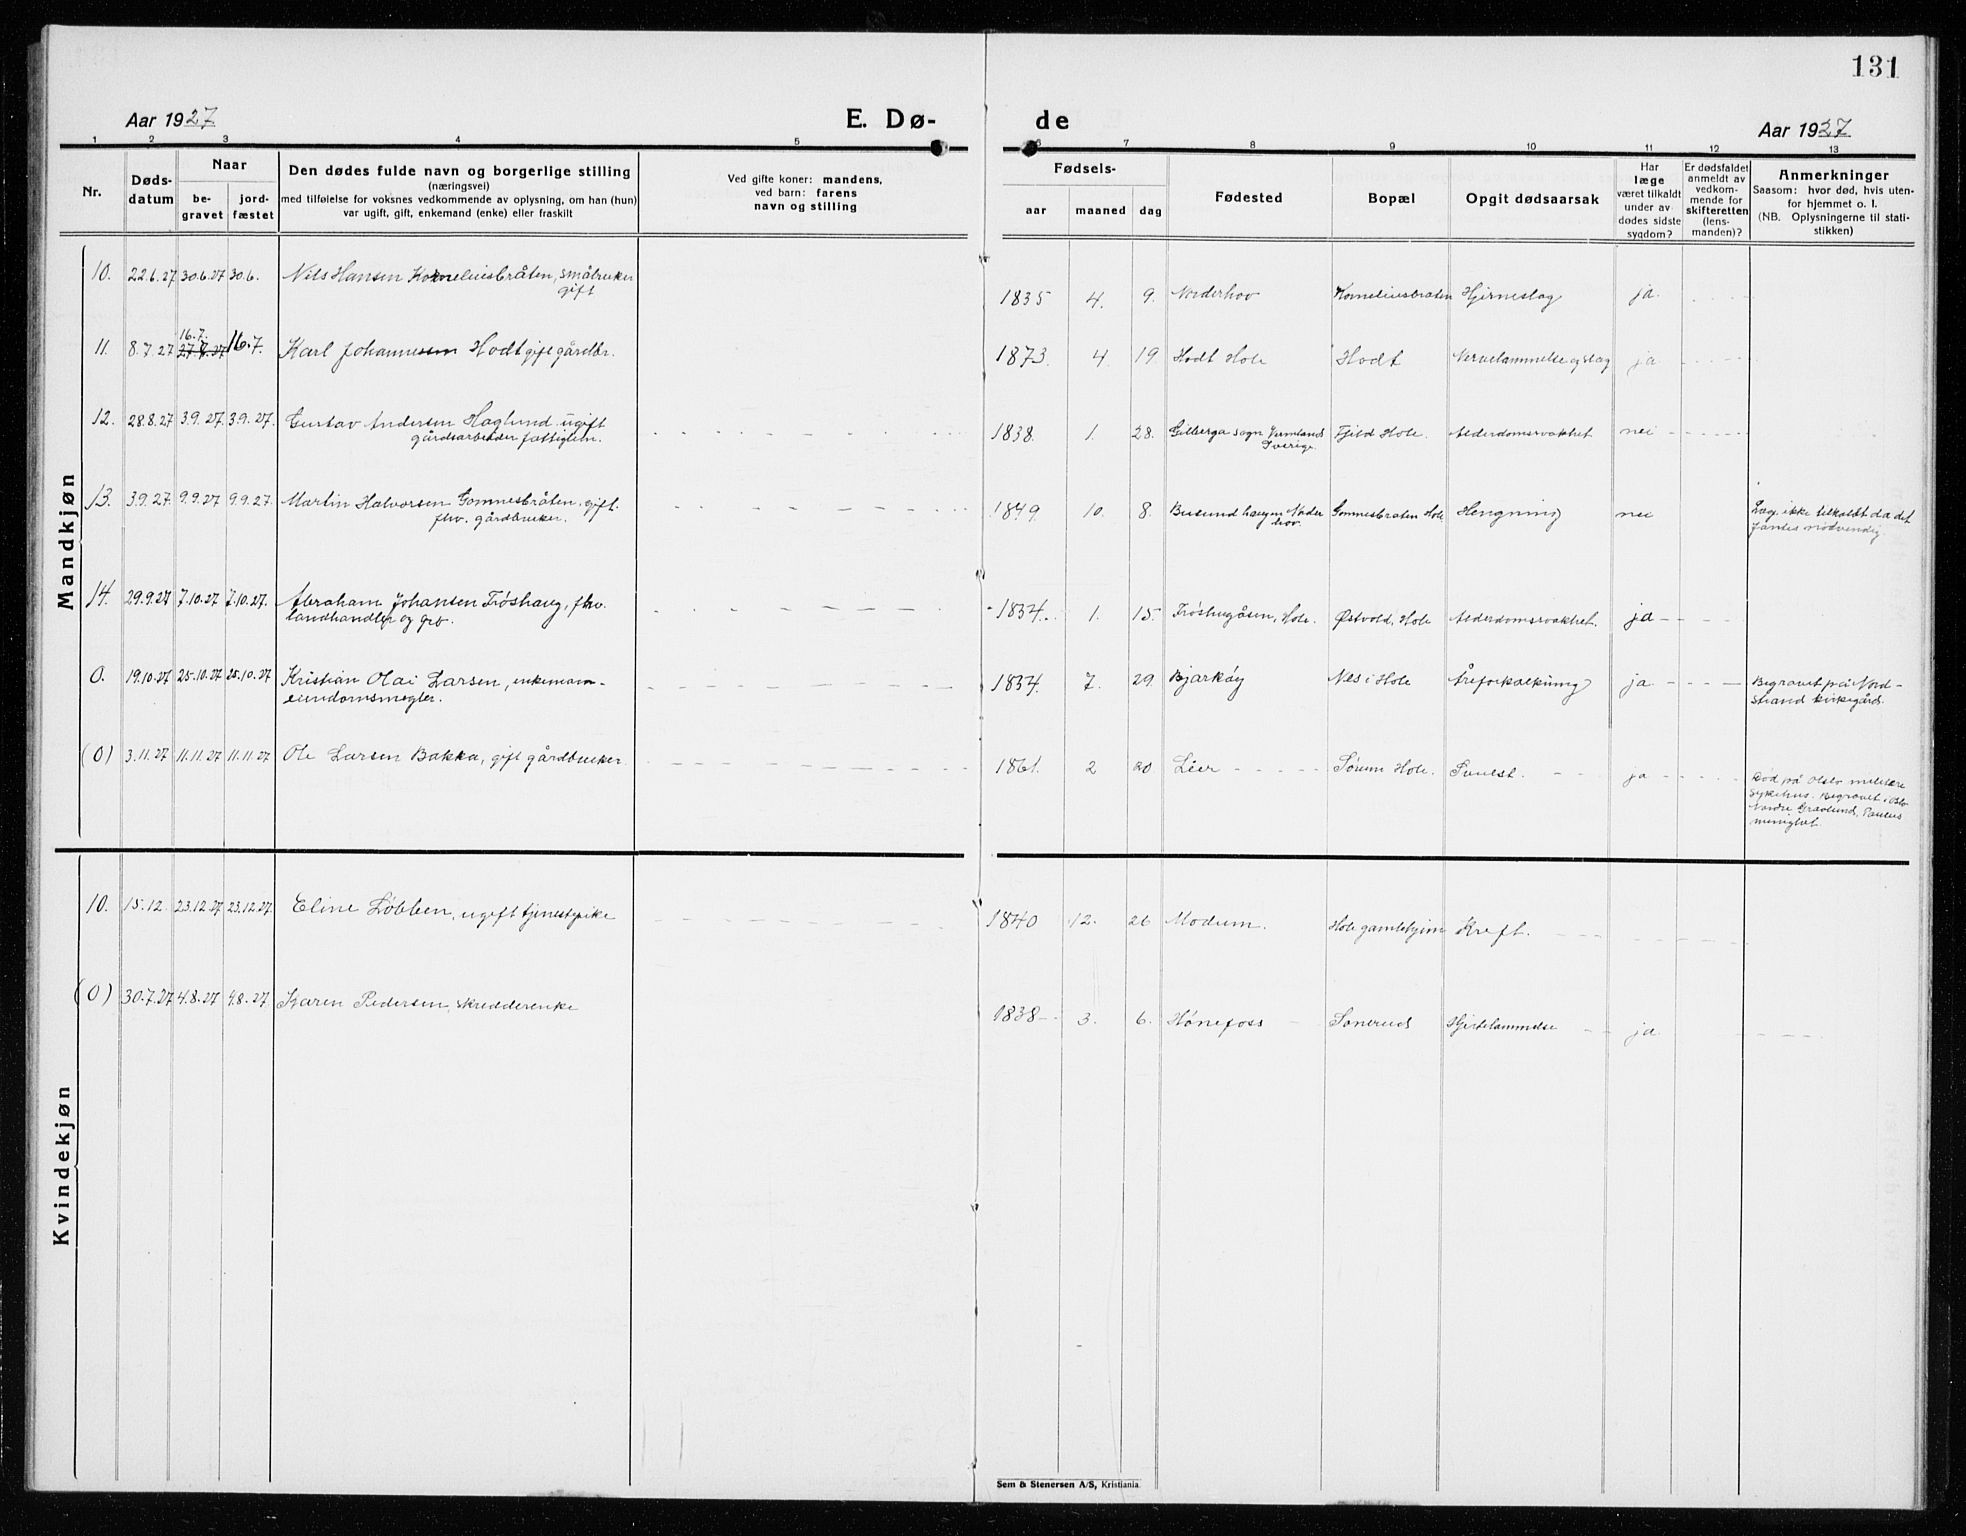 131
Aar 1927
E. Dø-
de
Aar 1927
1 2 3 4 5 6 7 8 9 10 11 12 13
Nr.
Døds-
datum
Naar
be-
gravet
jord-
fæstet
Den dødes fulde navn og borgerlige stilling
(næringsvei)
med tilføielse for voksnes vedkommende av oplysning, om han (hun)
var ugift, gift, enkemand (enke) eller fraskilt
Ved gifte koner: mandens,
ved barn: farens
navn og stilling
Fødsels-
aar maaned dag
Fødested
Bopæl
Opgit dødsaarsak
Har
læge
været tilkaldt
under av-
dødes sidste
sygdom?
Er dødsfaldet
anmeldt av
vedkom-
mende for
skifteretten
(lens-
manden)?
Anmerkninger
Saasom: hvor død, hvis uten-
for hjemmet o. l.
(NB. Oplysningerne til stati-
stikken)
Mandkjøn
10. 22.6.27 30.6.27 30.6. Nils Hansen Korneliusbråten, småbruker
gift
1835 4. 9. Norderhov Korneliusbraten Hjerneslag ja
16.7.
11. 8.7.27 27.7.27 16.7. Karl Johannessen Hodt gift gårdbr.
1873. 4. 19. Hodt Hole Hodt Nervelammelse og slag ja
12. 28.8.27 3.9.27. 3.9.27. Gustav Andersen Haglund ugift
gårdsarbeider fattiglem.
1838. 1. 28. Gilberga sogn Vermland
Sverige. Fjeld Hole. Alderdomssvakhet nei
13. 3.9.27. 9.9.27 9.9.27. Martin Halvorsen Gomnesbråten. gift.
fhv. gårdbruker.
1849. 10. 8. Busund haugen Norder
hov. Gomnesbraten Hole Hengning nei Læge ikke tilkaldt da det
fantes nødvendig
14. 29.9.27 7.10.27 7.10.27. Abraham Johansen Frøshaug, fhv.
landhandler og grb.
1834. 1. 15. Frøshugåsen, Hole. Østvold, Hole Alderdomssvakhet. ja
0. 19.10.27 25.10.27 25.10.27 Kristian Olai Larsen, enkemann-
eiendomsmegler.
1834. 7. 29 Bjarkøy Nes i Hole Åreforkalkning ja Begravet på Nord-
strand kirkegård.
(0) 3.11.27 11.11.27 11.11.27 Ole Larsen Bakka, gift gårdbruker
1861. 2 20. Lier Sørum Hole. ja Død på Oslo militære
sykehus. Begravet i Oslo
Nordre Gravlund, Paulus
menighet.
Kvindekjøn
10. 15.12. 23.12.27 23.12.27. Eline Løbben, ugift tjenestepike
1840 12. 26 Modum. Hole gamlehjem Kreft.
(0) 30.7.27 4.8.27 4.8.27 Karen Pedersen, skredderenke
1838 3. 6. Hønefoss Sonerud Hjertelammelse ja
Sem & Stenersen A/S, Kristiania